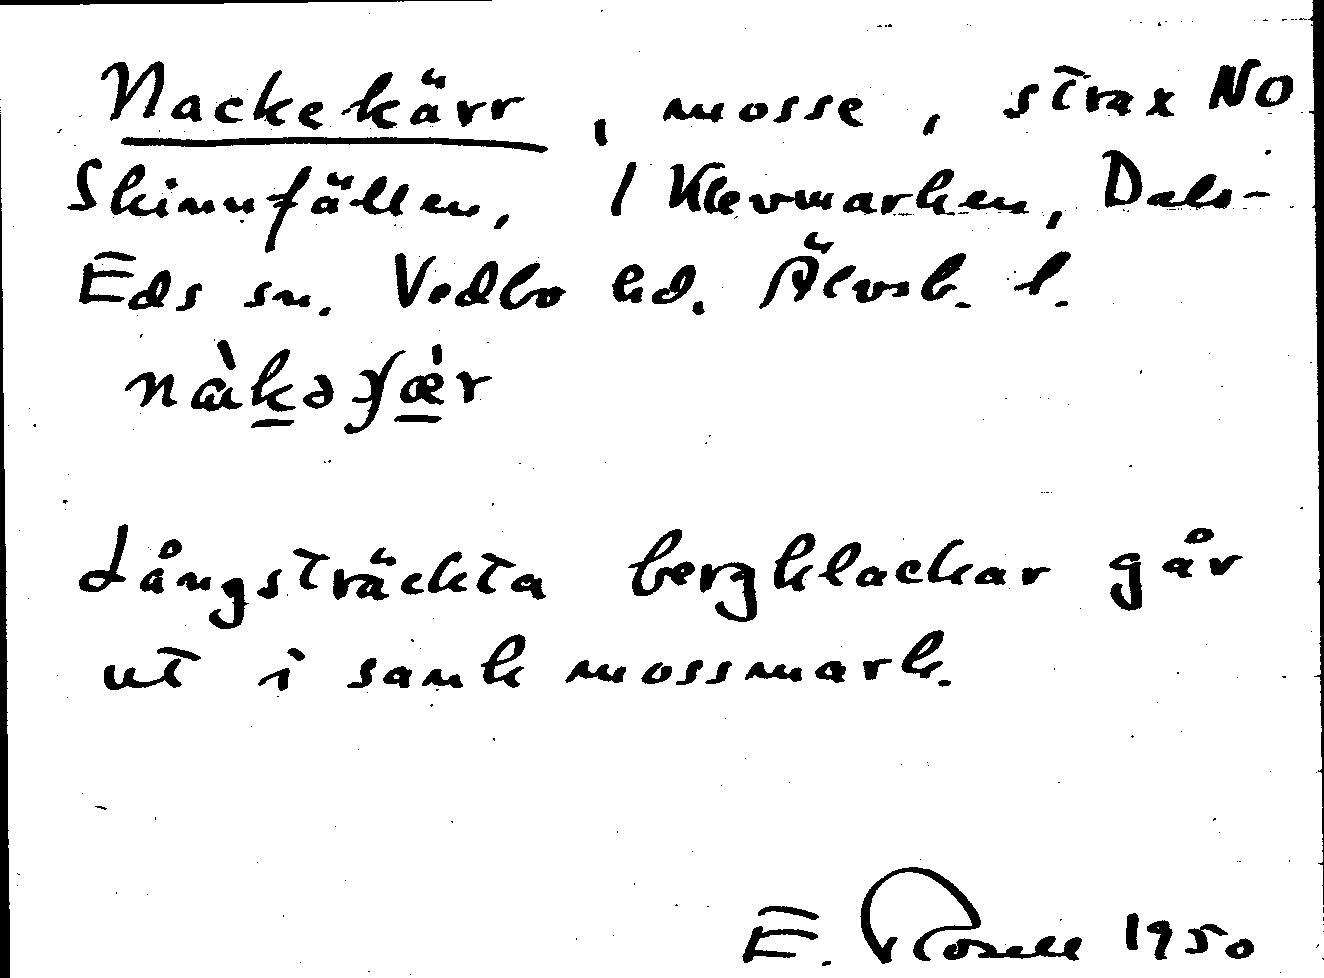 Nackekärr, mosse, strax NO
Skinnfällen, 1 Klevmarken, Dals-
Eds sn. Vedbo hd. Älvsb. l.
Långsträckta bergklackar går
ut i sank mossmark.
E. Rosell 1950